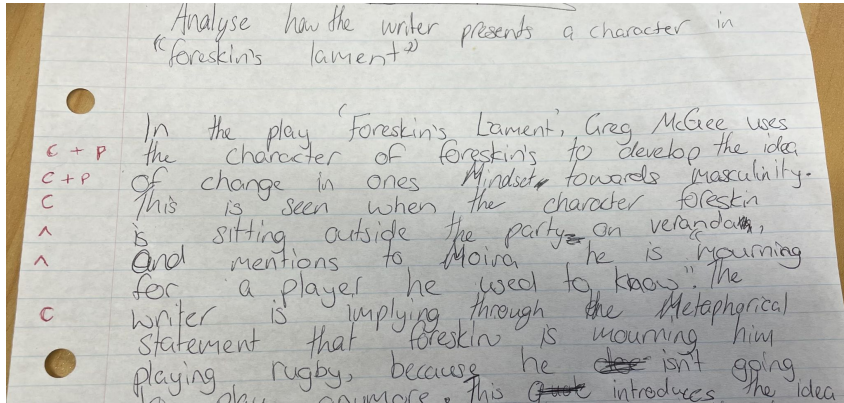 Analyse how the writer presents a character in
"foreskin's lament"
In the play 'Foreskin's Lament', Greg McGee uses
C + P the character of foreskin's to develop the idea
C + P of change in ones Mindset towards masculinity.
C This is seen when the character foreskin
^ is sitting outside the party on veranda,
^ And mentions to Moira he is "mourning
for a player he used to know". The
C writer is implying through the Metaphorical
statement that foreskin is mourning him
playing rugby, because he isn't going
to play anymore. This introduces the idea